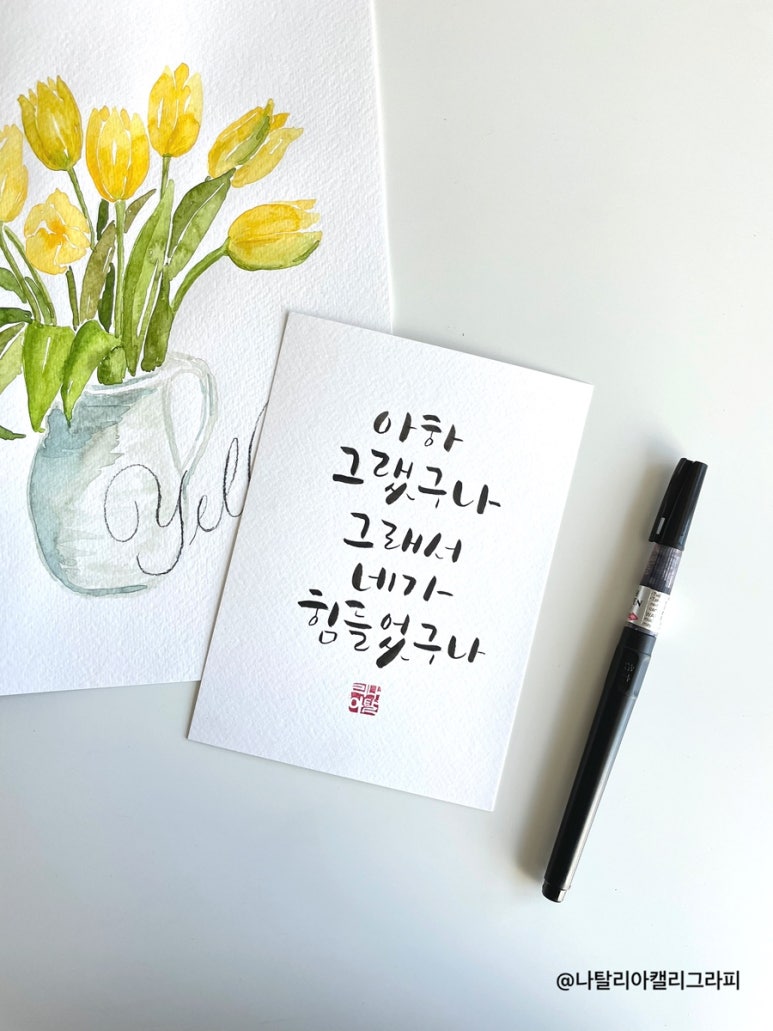 Yell
아하
그랬구나
그래서
네가
힘들었구나
리나
아탈
@나탈리아캘리그라피